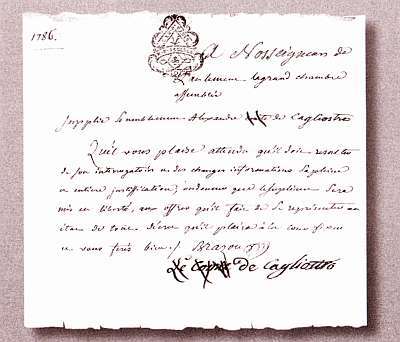 1786.
A Nosseigneurs de
Parlement la grand chambre
assemblée
supplie humblement Alexandre de Cagliostro
Qu'il vous plaise attendu qu'il doit resulter
de son interrogatoire et des charges informations sa pleine
et entiere justification, ordonner que le supliant sera
mis en liberté, aux offres qu'il fait de se représenter en
état de toute décret qu'il plaira à la cour
et vous ferés bien
Le Comte de Cagliostro